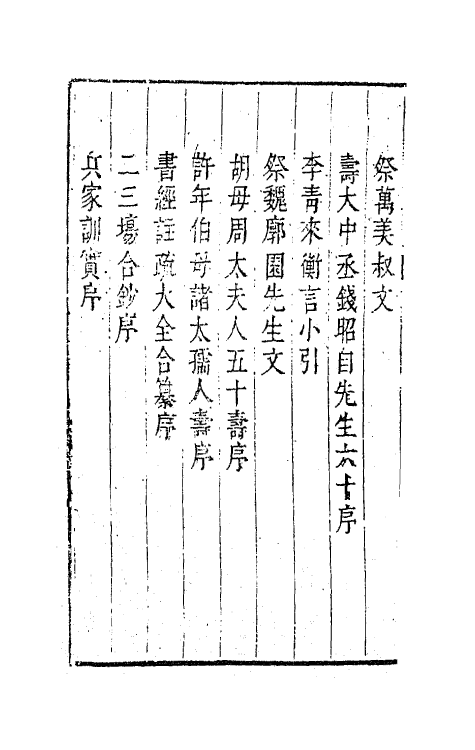 祭萬美叔文
壽大中丞錢昭自先生六十序
李青來衡言小引
祭魏廓園先生文
胡母周太夫人五十壽序
許年伯母諸太孺人壽序
書經註疏大全合纂序
二三場合鈔序
兵家訓實序